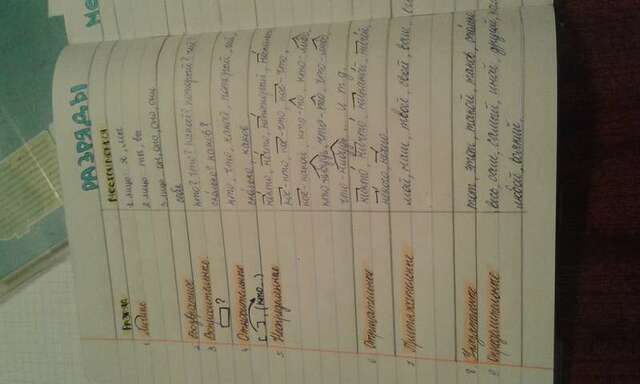 РАЗРЯДЫ
Ме
Разряд
Местоимения
1. Личные
1 лицо я, мы
2 лицо ты, вы
3 лицо он, она, оно, они
2. Возвратное
себя
3. Вопросительные
?
кто? что? какой? который? чей?
сколько? каков?
4. Относительные
[ ], (кто...)
кто, что, какой, который, чей,
сколько, каков
5. Неопределённые
некто, нечто, некоторый, несколько
кое-кто, кое-что,
кое-какой, кто-то, кто-либо,
кто-нибудь, что-то, что-либо,
что-нибудь и т.д.
6. Отрицательные
никто, ничто, никакой, ничей,
некого, нечего
7. Притяжательные
мой, наш, твой, свой, ваш,
8. Указательные
тот, этот, такой, таков,
9. Определительные
весь, сам, самый, иной, другой,
любой, всякий.